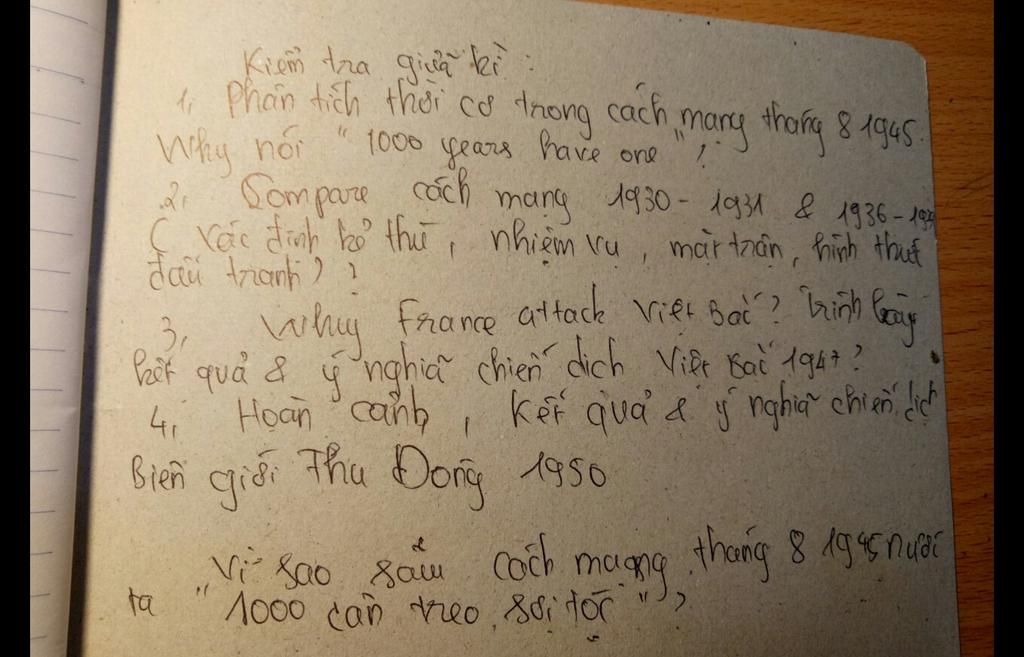 Kiểm tra giữa kì :
1, Phân tích thời cơ trong cách mạng tháng 8 1945.
Why nói " 1000 years have one " ?
2, Compare cách mạng 1930 - 1931 & 1936 - 1939
( Xác định kẻ thù, nhiệm vụ, mặt trận, hình thức
đấu tranh ) ?
3, Why France attack Việt Bắc ? Trình bày
kết quả & ý nghĩa chiến dịch Việt Bắc 1947 ?
4, Hoàn cảnh, kết quả & ý nghĩa chiến dịch
Biên giới Thu Đông 1950
Vì sao sau cách mạng tháng 8 1945 nước
ta " 1000 cân treo sợi tóc " ?